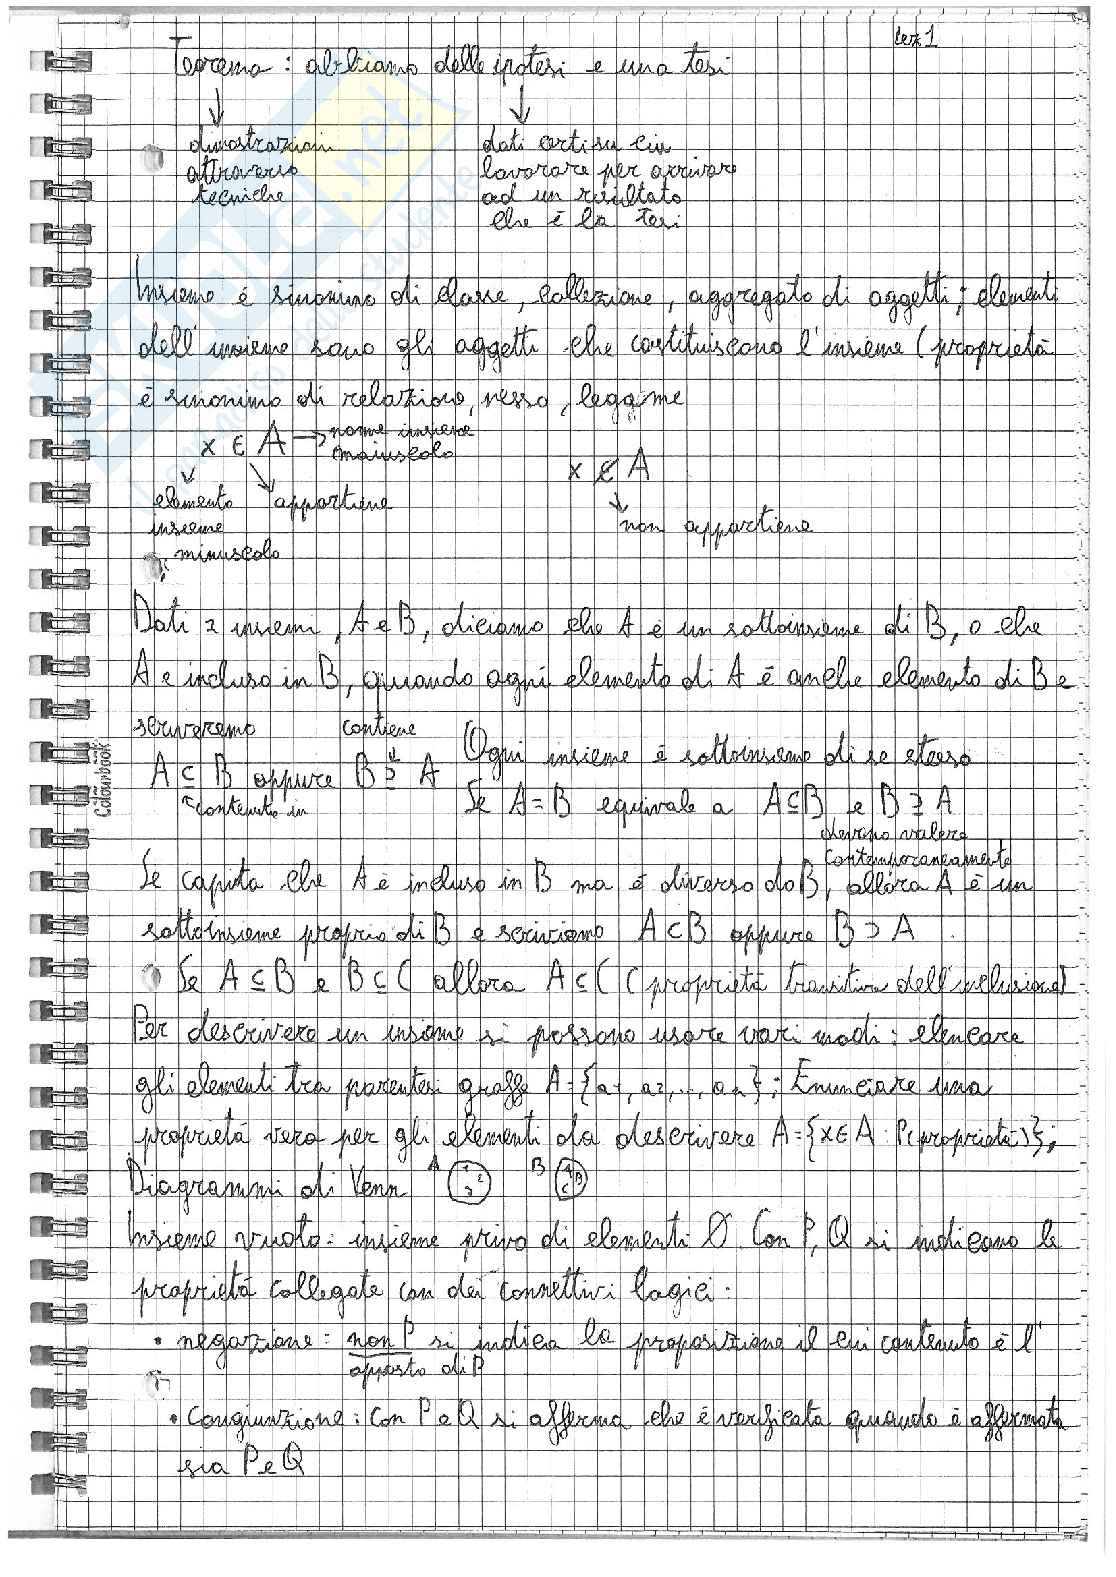 Lez 1
Teorema: abbiamo delle ipotesi e una tesi
↓ ↓
dimostrazioni dati certi su cui
attraverso lavorare per arrivare
tecniche ad un risultato
che è la tesi
Insieme è sinonimo di classe, collezione, aggregato di oggetti; elementi
dell'insieme sono gli oggetti che costituiscono l'insieme (proprietà
è sinonimo di relazione, nesso, legame
x ∈ A → nome insieme
maiuscolo
x ∉ A
elemento appartiene
insieme non appartiene
minuscolo
Dati 2 insiemi, A e B, diciamo che A è un sottoinsieme di B, o che
A e incluso in B, quando ogni elemento di A è anche elemento di B e
scriveremo contiene
Ogni insieme è sottoinsieme di se stesso
A ⊆ B oppure B ⊇ A
contenuto in
Se A = B equivale a A ⊆ B e B ⊇ A
devono valere
contemporaneamente
Se capita che A è incluso in B ma è diverso da B, allora A è un
sottoinsieme proprio di B e scriviamo A ⊂ B oppure B ⊃ A .
Se A ⊆ B e B ⊆ C allora A ⊆ C (proprietà transitiva dell'inclusione)
Per descrivere un insieme si possono usare vari modi: elencare
gli elementi tra parentesi graffe A = {a1, a2, ..., an}; Enunciare una
proprietà vera per gli elementi da descrivere A = {x ∈ A : P(proprietà)};
Diagrammi di Venn A B
Insieme vuoto: insieme privo di elementi ∅. Con P, Q si indicano le
proprietà collegate con dei connettivi logici:
• negazione: non P si indica la proposizione il cui contenuto è l'
opposto di P
• Congiunzione: con P e Q si afferma che è verificata quando è affermata
sia P e Q
Colourbook